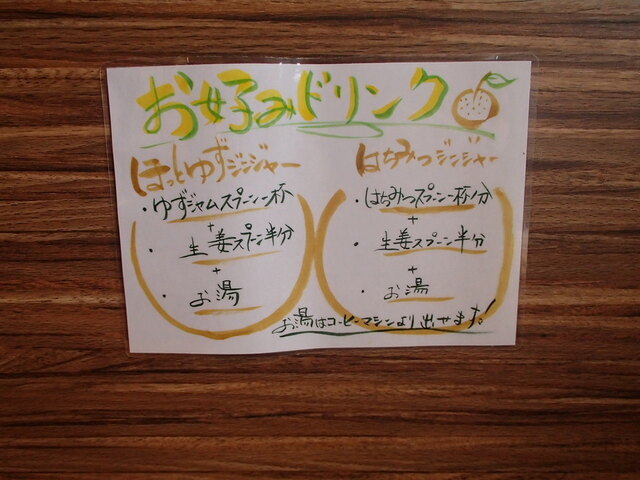 お好みドリンク
ほっとゆずジンジャー
・ゆずジャムスプーン一杯
+
・生姜スプーン半分
+
・お湯
はちみつジンジャー
・はちみつスプーン一杯分
+
・生姜スプーン半分
+
・お湯
お湯はコーヒーマシンより出せます!